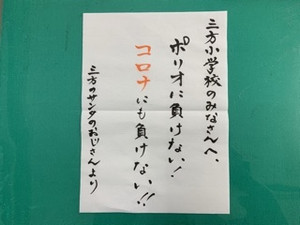 三方小学校のみなさんへ、
ポリオに負けない!
コロナにも負けない!!
三方のサンタのおじさんより